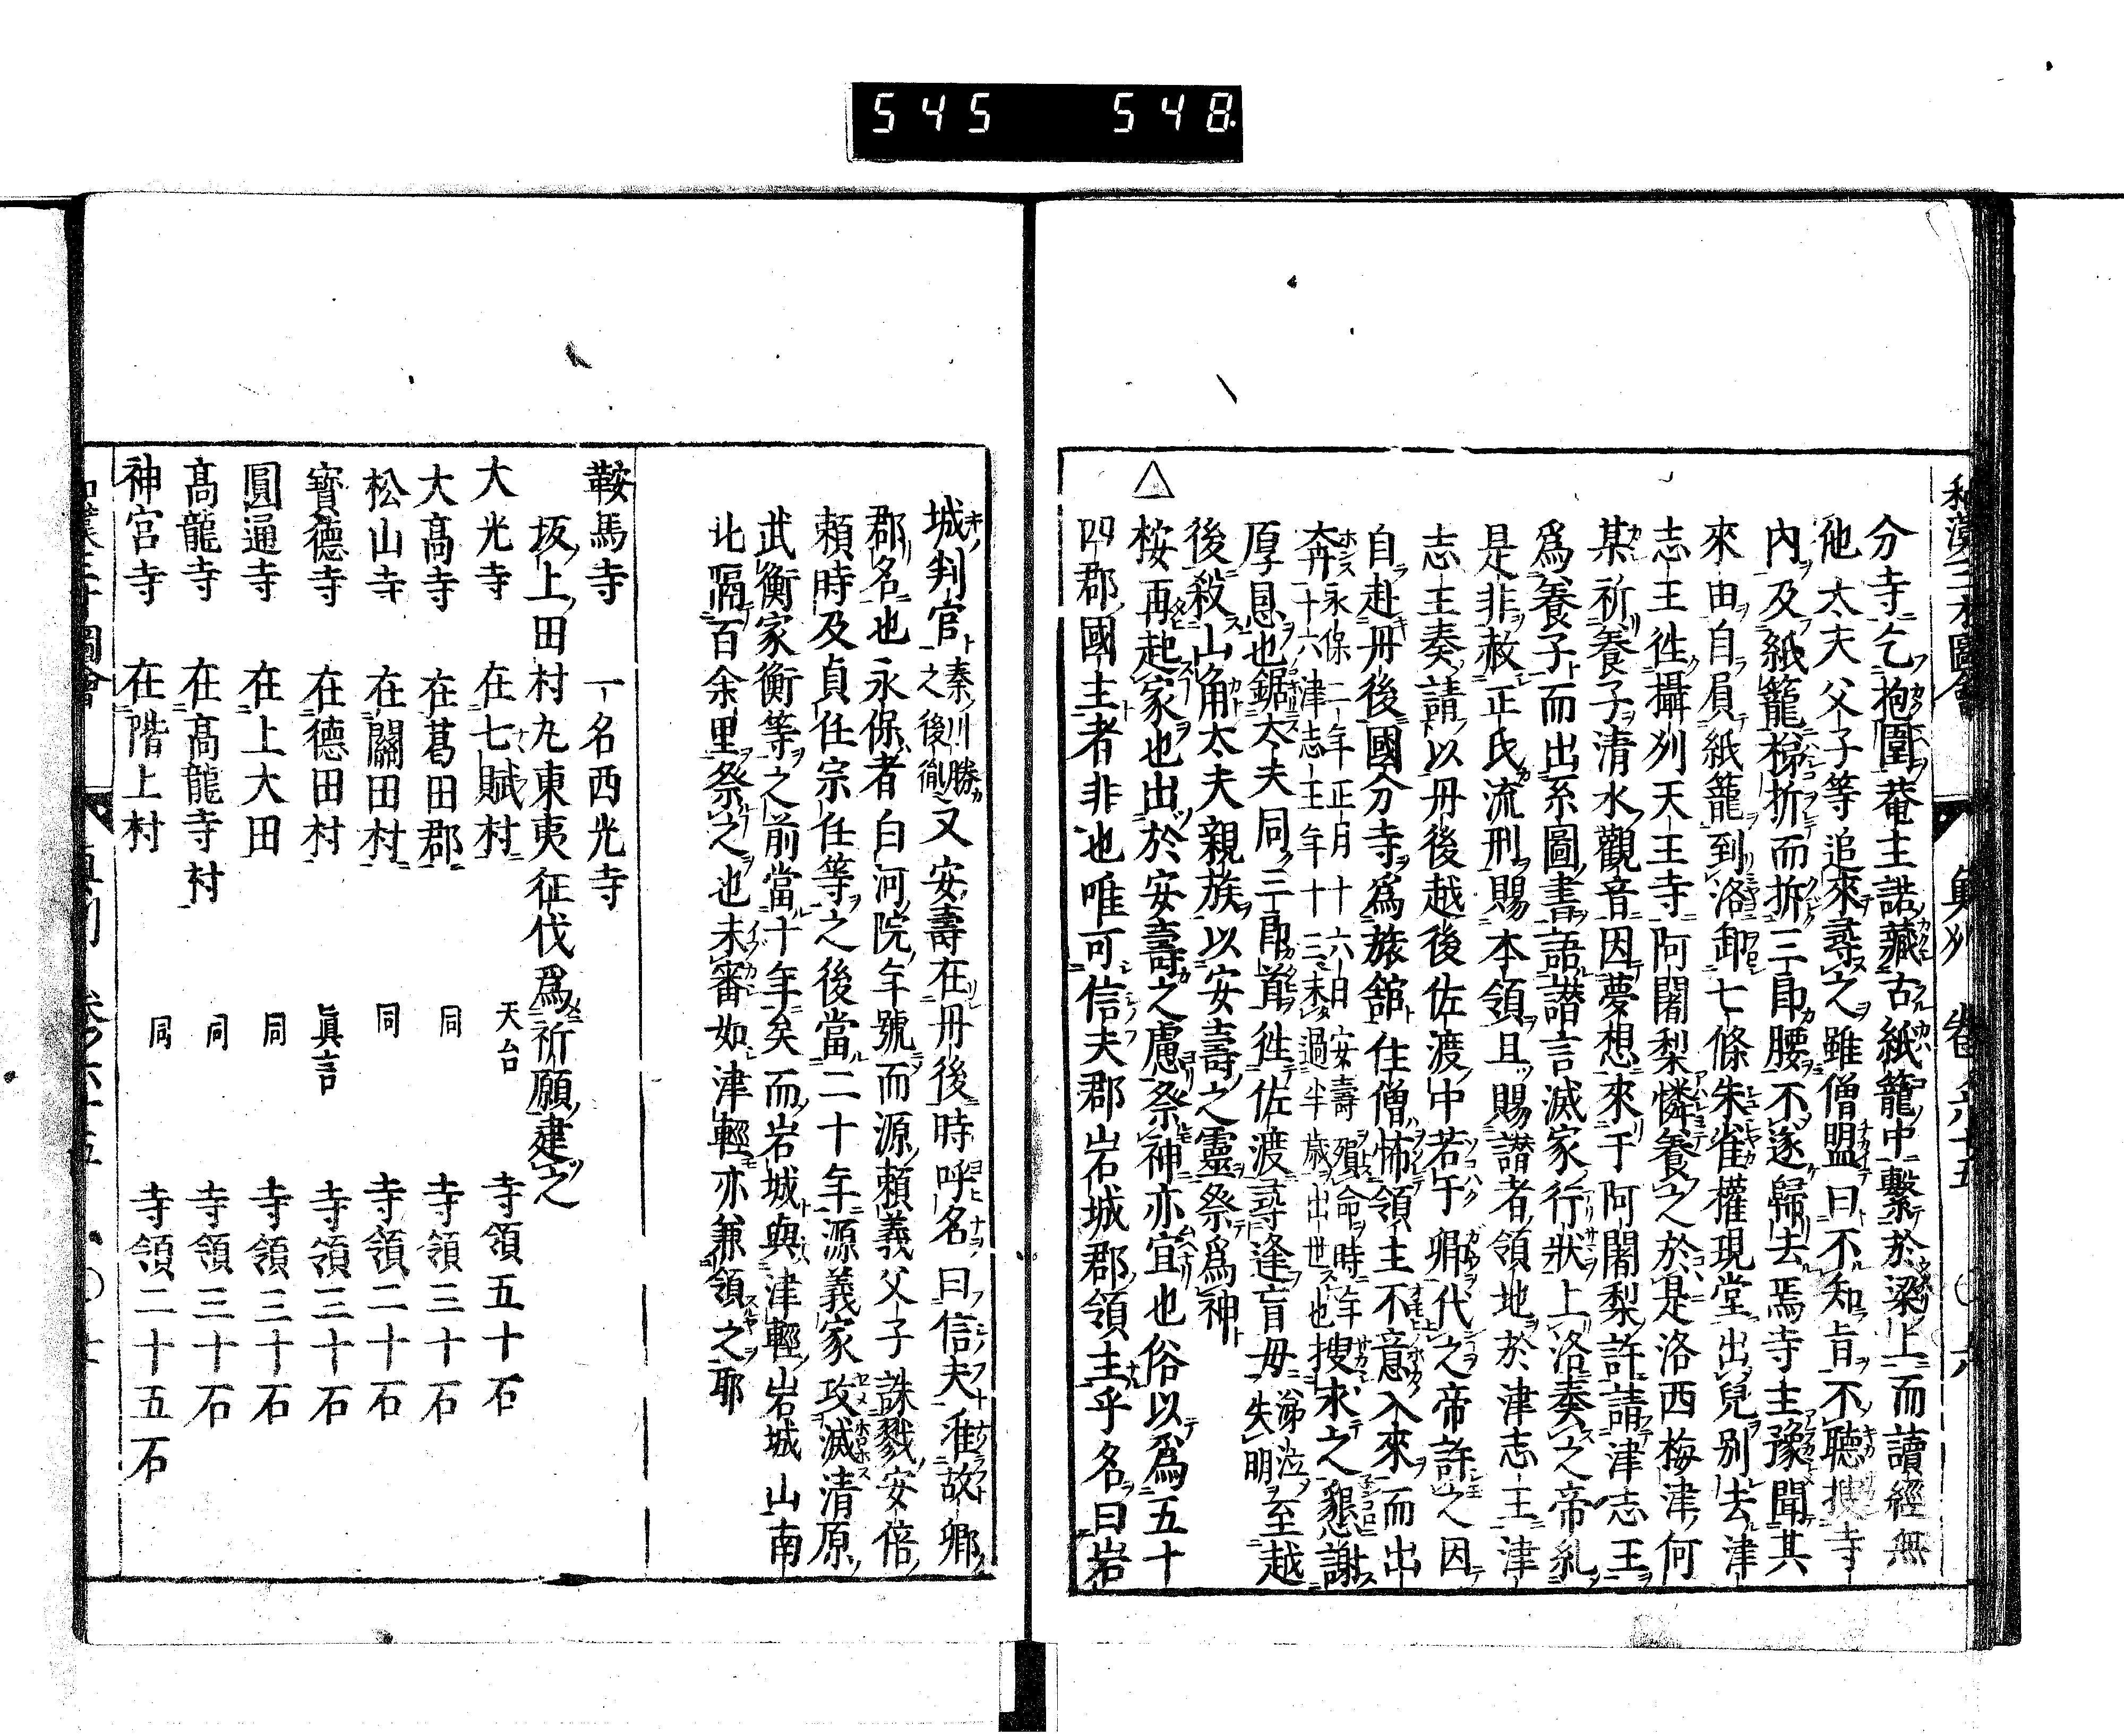 545 548
分寺乞抱圍菴主諾藏古紙籠中繫於梁上而讀經無
他太夫父子等追來尋之雖僧盟曰不知旨不聽搜寺
內及紙籠梯折而拆三郎腰不遂歸去焉寺主豫聞其
來由自負紙籠到洛卸七條朱雀權現堂出兒別去津
志王徃攝刕天王寺阿闍梨憐養之於是洛西梅津何
某祈養子清水觀音因夢想來于阿闍梨許請津志王
爲養子而出系圖書語譖言滅家行狀上洛奏之帝糺
是非赦正氏流刑賜本領且賜譖者領地於津志王津
志王奏請以丹後越後佐渡中若干鄉代之帝許之因
自赴丹後國分寺爲旅舘住僧怖領主不意入來而出
奔永保二年正月十六日安壽殞命時年二十六津志王年十三未過半歲出世也搜求之懇謝
厚恩也鋸太夫同三郎首徃佐渡尋逢盲母涕泣失明至越
後殺山角太夫親族以安壽之靈祭爲神
△桉再起家也出於安壽之慮祭神亦宜也俗以爲五十
四郡國主者非也唯可信夫郡岩城郡領主乎名曰岩
城判官秦川勝之後胤又安壽在丹後時呼名曰信夫准故鄉
郡名也永保者白河院年號而源賴義父子誅戮安倍
賴時及貞任宗任等之後當二十年源義家攻滅清原
武衡家衡等之前當十年矣而岩城與津輕岩城山南
北隔百余里祭之也未審如津輕亦兼領之耶
鞍馬寺 一名西光寺
坂上田村丸東夷征伐爲祈願建之
大光寺 在七賦村 天台 寺領五十石
大高寺 在葛田郡 同 寺領三十石
松山寺 在關田村 同 寺領二十石
寳德寺 在德田村 眞言 寺領三十石
圓通寺 在上大田 同 寺領三十石
高龍寺 在高龍寺村 同 寺領三十石
神宮寺 在階上村 同 寺領二十五石